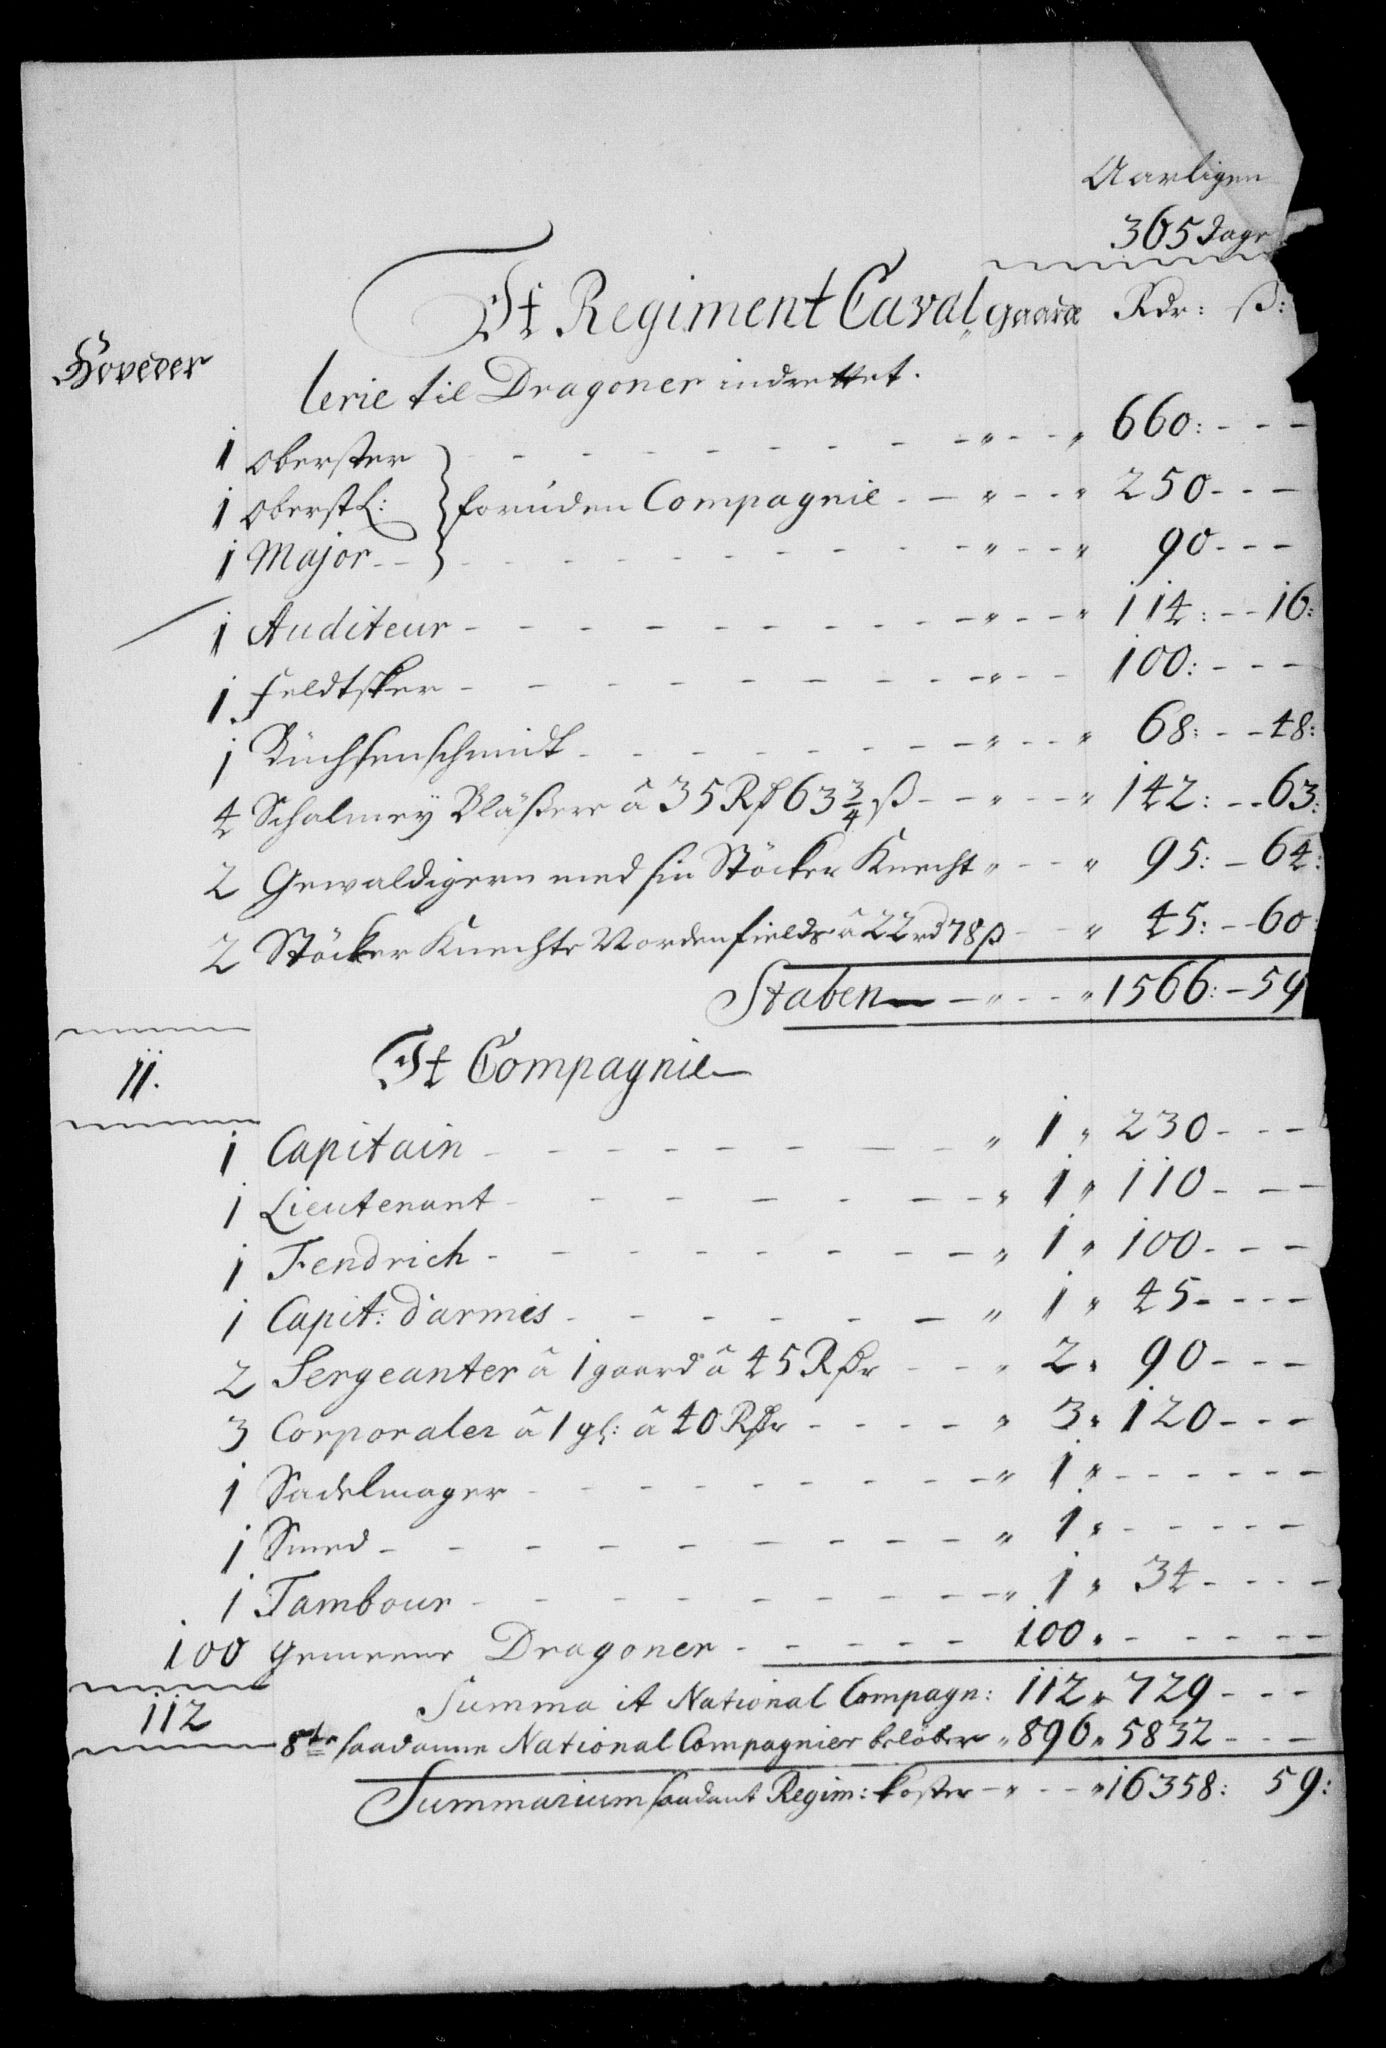 Aarligen
365 Dage
It Regiment Caval„ gaarde Rdr: ß:
Hoveder
lerie til Dragoner indrettet.
1 Oberster - - - „ - - „ 660: - - -
1 Oberstl: foruden Compagnie - - „ - - „ 250 - - -
1 Major - - „ - - „ 90 - - -
1 Auditeur - - - „ - - „ 114: - - 16:
1 Feldtsker - - - „ - - 100: - - -
1 Büchsenschmidt - - - „ - - „ 68: - - 48:
4 Schalmey Bläßere â 35 Rd 63 3/4 ß - - „ - - „ 142: - - 63:
2 Gewaldigern med sin Stöcker Knecht „ - - „ 95: - 64:
2 Stöcker Knechte Nordenfields â 22 rd 78 ß - - „ 45: - - 60:
Staben - „ - - „ 1566: - 59
11.
It Compagnie
1 Capitain - - - „ 1 „ 230 - - -
1 Lieutenant - - - „ 1 „ 110 - - -
1 Fendrich - - - „ 1 „ 100 - - -
1 Capit: d'armes - - - „ 1 „ 45 - - -
2 Sergeanter â 1 gaard â 45 Rdr - - „ 2 „ 90 - - -
3 Corporaler â 1 gl: â 40 Rdr - - - „ 3 „ 120 - - -
1 Sadelmager - - - „ 1 „ - - -
1 Smed - - - „ 1 „ - - -
1 Tambour - - - „ 1 „ 34 - - -
100 Gemeene Dragoner - - - 100 „ - - -
112
Summa it National Compagn: 112 „ 729 - - -
8te saadanne National Compagnier belöber „ 896 „ 5832 - - -
Summarium saadant Regim: koster - „ - - „ 16358: 59: